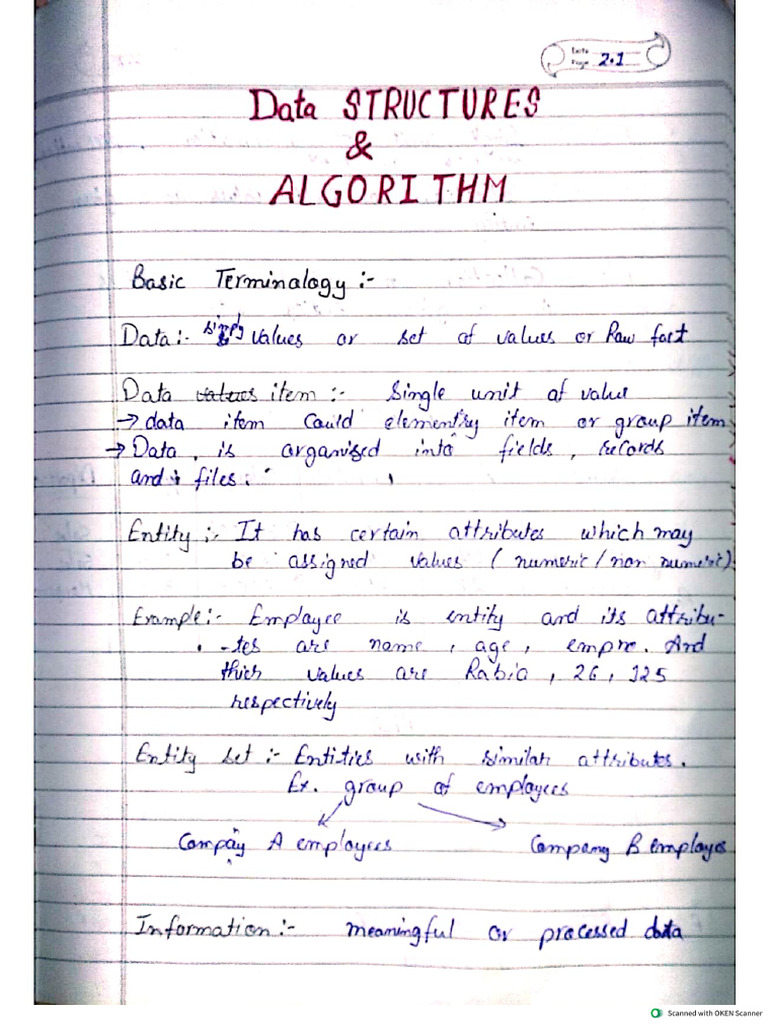 Date
Page 2.1
Data STRUCTURES
&
ALGORITHM
Basic Terminalogy :-
Data :- simply values or set of values or Raw fact
Data values item :- Single unit of value
→ data item could elementry item or group item
→ Data , is organised into fields , records
and files .
Entity :- It has certain attributes which may
be assigned values ( numeric / non numeric )
Example :- Employee is entity and its attribu-
-tes are name , age , empno . And
their values are Rabia , 26 , 125
respectively
Entity set :- Entities with similar attributes .
Ex. group of employees
Compay A employees Company B employes
Information :- meaningful or processed data
Scanned with OKEN Scanner